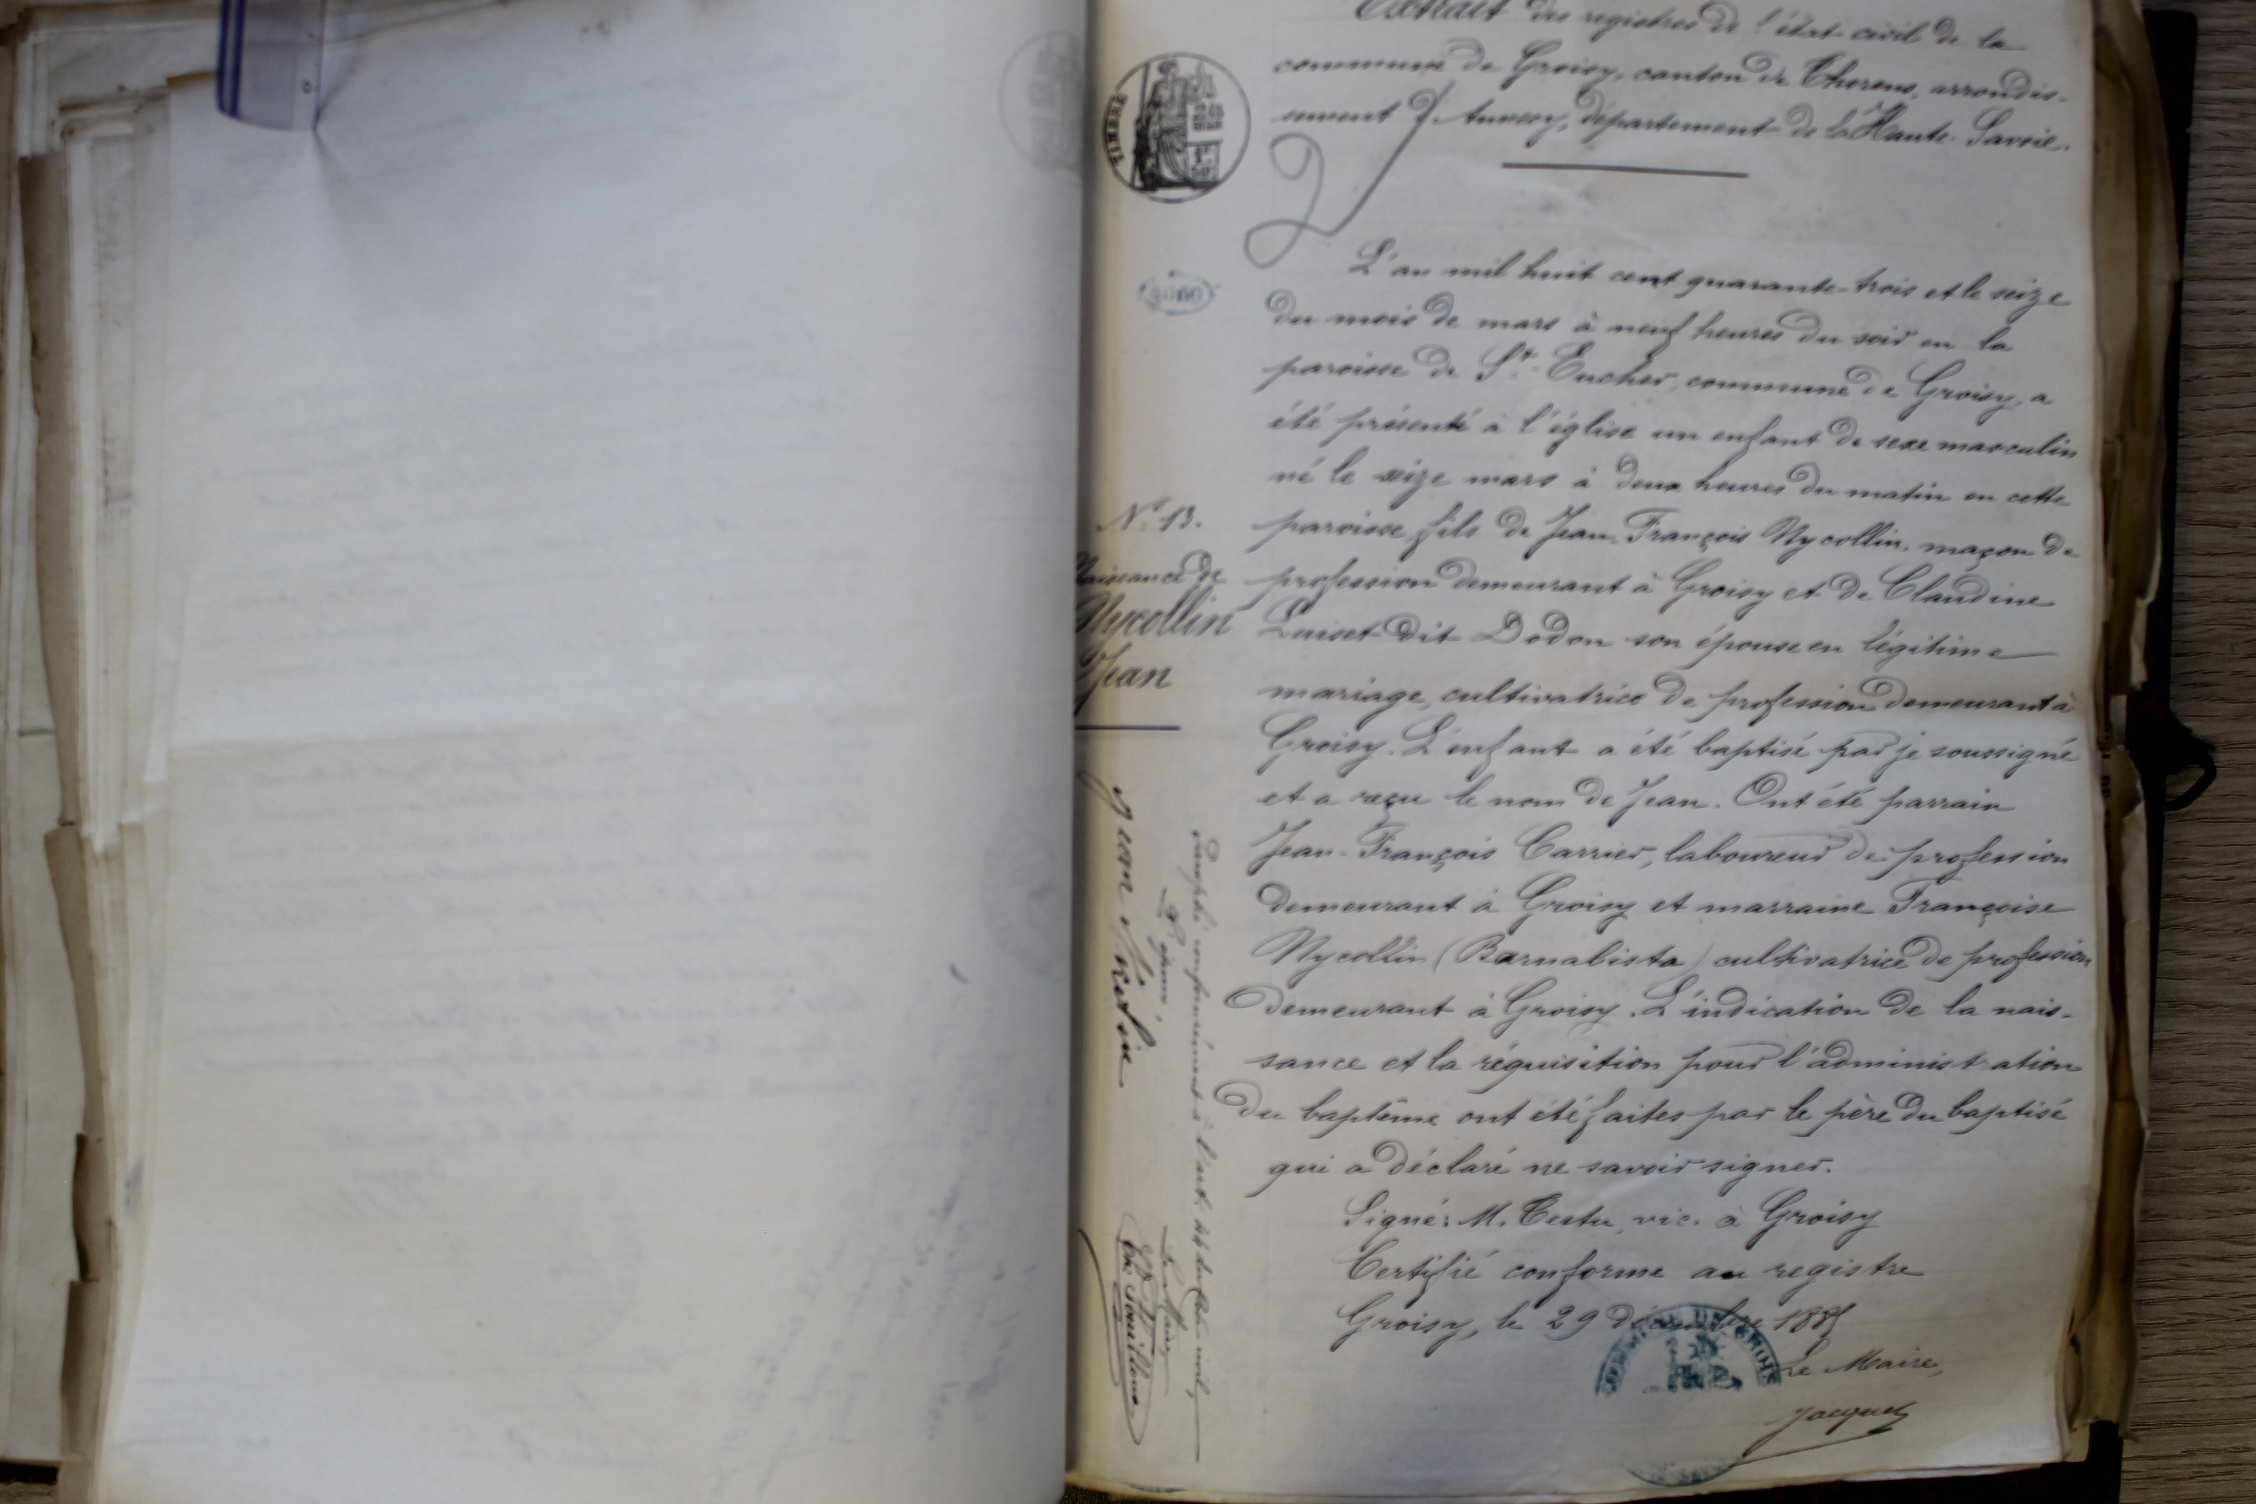 Extrait des registres de l'état civil de la
commune de Groisy, canton de Thorens, arrondis-
sement d'Annecy, département de la Haute-Savoie.
TIMBRE
2
L'an mil huit cent quarante-trois et le seize
du mois de mars à neuf heures du soir en la
paroisse de St. Eucher, commune de Groisy, a
été présenté à l'église un enfant de sexe masculin
né le seize mars à deux heures du matin en cette
paroisse, fils de Jean-François Nycollin, maçon de
profession demeurant à Groisy et de Claudine
Luiset dit Dodon son épouse en légitime
mariage, cultivatrice de profession demeurant à
Groisy. L'enfant a été baptisé par je soussigné
et a reçu le nom de Jean. Ont été parrain
Jean-François Carrier, laboureur de profession
demeurant à Groisy et marraine Françoise
Nycollin (Barnabista) cultivatrice de profession
demeurant à Groisy. L'indication de la nais-
sance et la réquisition pour l'administration
du baptême ont été faites par le père du baptisé
qui a déclaré ne savoir signer.
Signé: M. Testu, vic. à Groisy
Certifié conforme au registre
Groisy, le 29 décembre 188
Le Maire,
Jacquet
No. 13.
Naissance de
Nycollin
Jean
Paraphé conformément à l'art. 44 du Code civil,
Le Maire